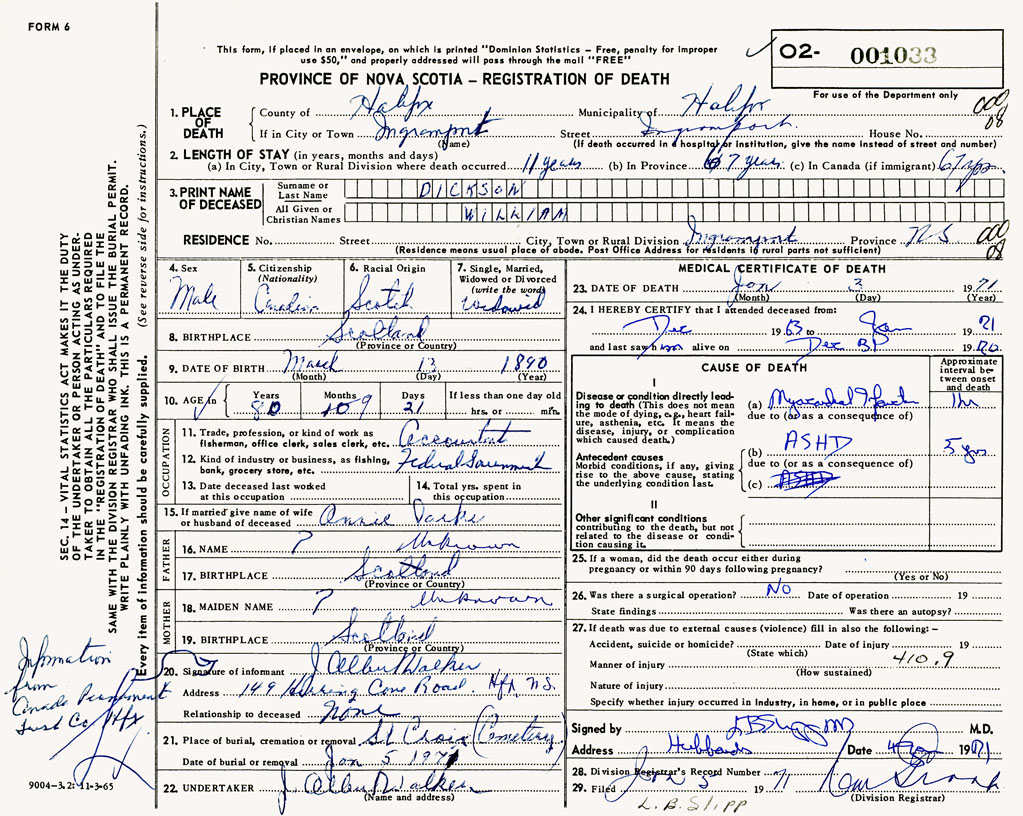 FORM 6
This form, if placed in an envelope, on which is printed "Dominion Statistics – Free, penalty for improper
use $50," and properly addressed will pass through the mail "FREE"
PROVINCE OF NOVA SCOTIA – REGISTRATION OF DEATH
O2- 001033
For use of the Department only
1. PLACE OF DEATH
County of Halifax Municipality of Halifax
If in City or Town Ingramport Street Ingramport House No.
(Name) (If death occurred in a hospital or institution, give the name instead of street and number)
008
2. LENGTH OF STAY (in years, months and days)
(a) In City, Town or Rural Division where death occurred 11 years (b) In Province 67 years (c) In Canada (if immigrant) 67 yrs.
3. PRINT NAME OF DECEASED
Surname or Last Name DICKSON
All Given or Christian Names WILLIAM
RESIDENCE No. Street City, Town or Rural Division Ingramport Province N.S.
(Residence means usual place of abode. Post Office Address for residents if rural parts not sufficient)
008
4. Sex Male
5. Citizenship (Nationality) Canadian
6. Racial Origin Scotch
7. Single, Married, Widowed or Divorced (write the word) Widowed
8. BIRTHPLACE Scotland
(Province or Country)
9. DATE OF BIRTH March 13 1890
(Month) (Day) (Year)
10. AGE in Years 80 Months 10 9 Days 21 If less than one day old hrs. or min.
OCCUPATION
11. Trade, profession, or kind of work as fisherman, office clerk, sales clerk, etc. Accountant
12. Kind of industry or business, as fishing, bank, grocery store, etc. Federal Government
13. Date deceased last worked at this occupation
14. Total yrs. spent in this occupation
15. If married give name of wife or husband of deceased Annie
FATHER
16. NAME ? Unknown
17. BIRTHPLACE Scotland
(Province or Country)
MOTHER
18. MAIDEN NAME ? Unknown
19. BIRTHPLACE Scotland
(Province or Country)
20. Signature of informant J Albert Walker
Address 149 Herring Cove Road Hfx N.S.
Relationship to deceased None
21. Place of burial, cremation or removal St Croix (Cemetery)
Date of burial or removal Jan 5 1971
22. UNDERTAKER J. Albert Walker
(Name and address)
MEDICAL CERTIFICATE OF DEATH
23. DATE OF DEATH Jan 3 1971
(Month) (Day) (Year)
24. I HEREBY CERTIFY that I attended deceased from:
Dec 1963 to Jan 1971
and last saw him alive on Dec 1970
CAUSE OF DEATH
Approximate interval between onset and death
I
Disease or condition directly leading to death (This does not mean the mode of dying, e.g., heart failure, asthenia, etc. It means the disease, injury, or complication which caused death.)
(a) Myocardial Infarction 1 hr
due to (or as a consequence of)
Antecedent causes
Morbid conditions, if any, giving rise to the above cause, stating the underlying condition last.
(b) ASHD 5 yrs
due to (or as a consequence of)
(c) ASHD
II
Other significant conditions contributing to the death, but not related to the disease or condition causing it.
25. If a woman, did the death occur either during pregnancy or within 90 days following pregnancy?
(Yes or No)
26. Was there a surgical operation? No Date of operation 19
State findings Was there an autopsy?
27. If death was due to external causes (violence) fill in also the following: –
Accident, suicide or homicide? Date of injury 19
(State which)
Manner of injury 410.9
(How sustained)
Nature of injury
Specify whether injury occurred in Industry, in home, or in public place
Signed by M.D.
Address Hubbards Date 1971
28. Division Registrar's Record Number
29. Filed Jan 5 1971
(Division Registrar)
L.B. Slipp
SEC. 14 – VITAL STATISTICS ACT MAKES IT THE DUTY
OF THE UNDERTAKER OR PERSON ACTING AS UNDER-
TAKER TO OBTAIN ALL THE PARTICULARS REQUIRED
IN THE "REGISTRATION OF DEATH" AND TO FILE THE
SAME WITH THE DIVISION REGISTRAR WHO SHALL ISSUE THE BURIAL PERMIT.
WRITE PLAINLY WITH UNFADING INK. THIS IS A PERMANENT RECORD.
Every item of information should be carefully supplied. (See reverse side for instructions.)
Information
from
Canada Permanent
Trust Co Hfx
9004-3.2: 11-3-65